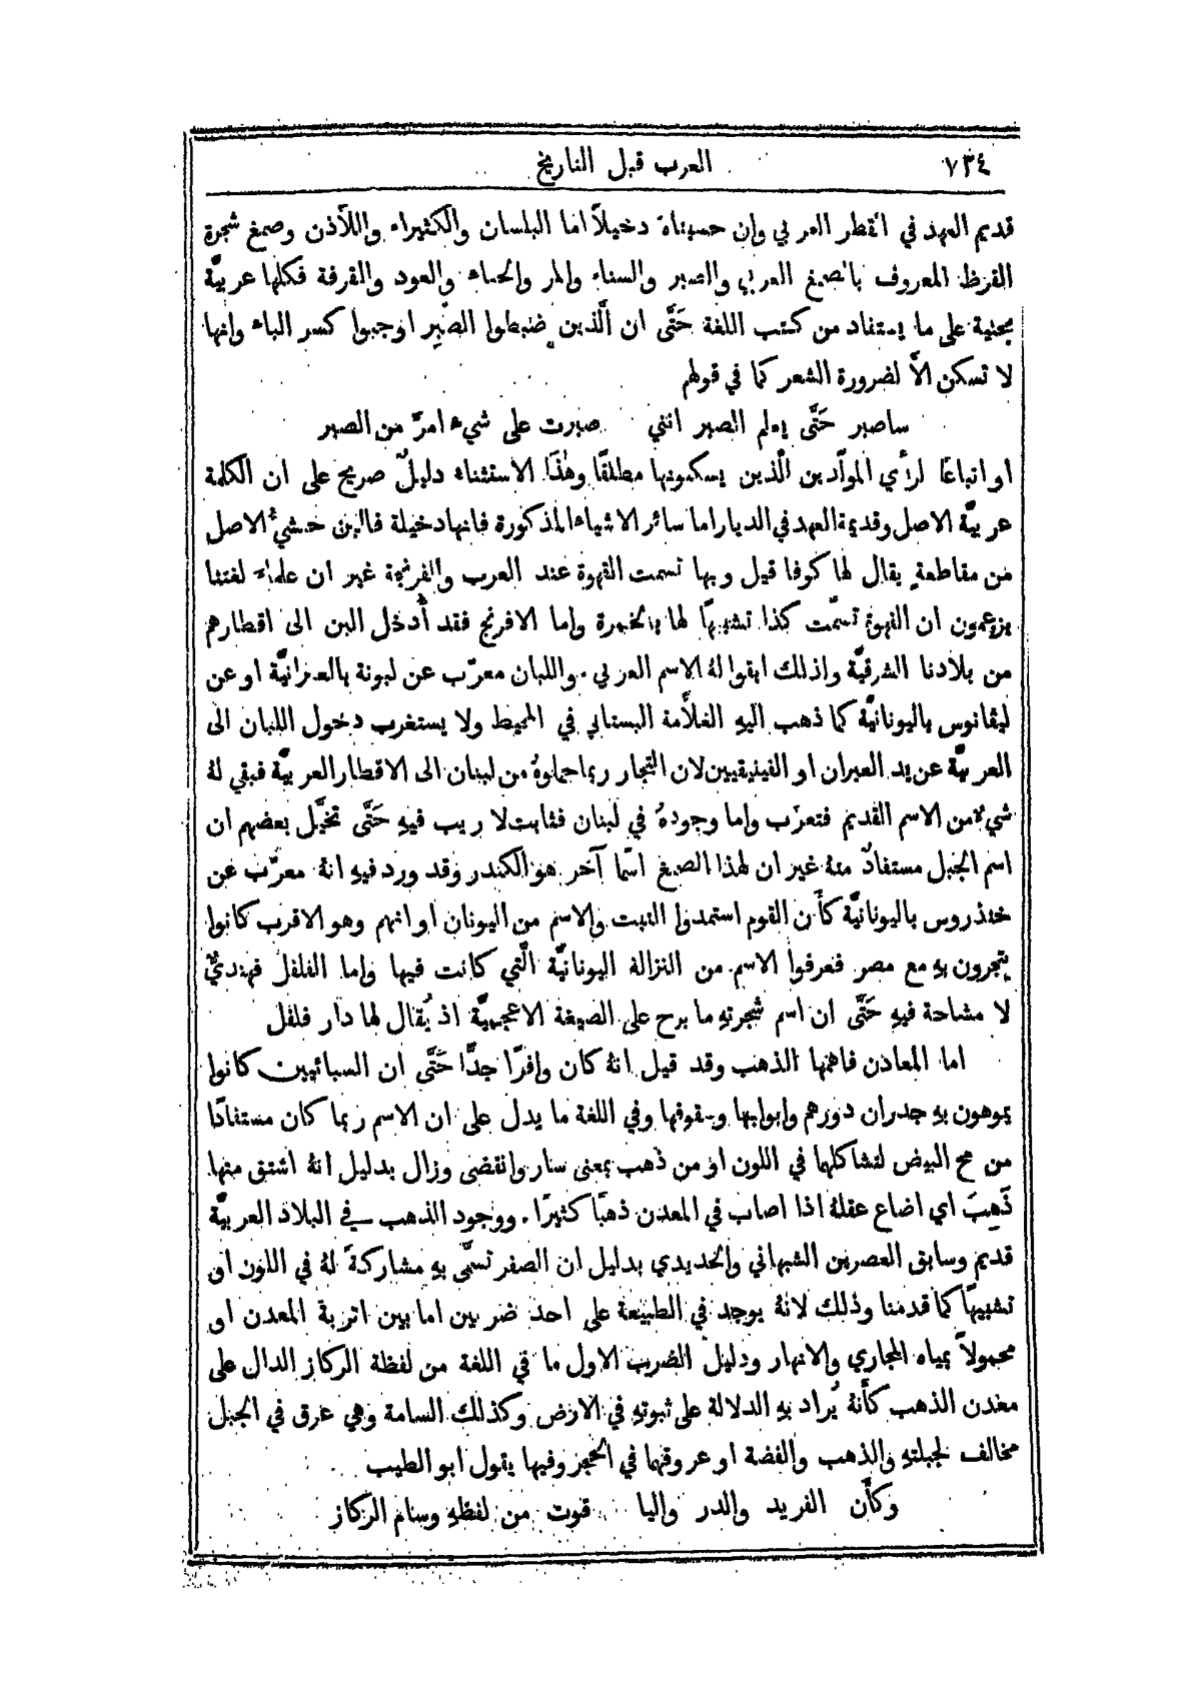 ٧٣٤ العرب قبل التاريخ
قديم العهد في القطر العربي وإن حسبناهُ دخيلاً اما البلسان والكثيراء واللاَّذن وصمغ شجرة
القرظ المعروف بالصمغ العربي والصبر والسناء والمر والحناء والعود والقرفة فكلها عربيَّة
بجنية على ما يستفاد من كتب اللغة حَتَّى ان الَّذين ضبطوا الصَّبِر اوجبوا كسر الباء وانها
لا تسكن الاَّ لضرورة الشعر كما في قولهم
ساصبر حَتَّى يعلم الصبر انني صبرت على شيءٍ امرَّ من الصبر
او اتباعًا لرأي المولَّدين الَّذين يسكنونها مطلقًا وهٰذَا الاستثناء دليلٌ صريح على ان الكلمة
عربيَّة الاصل وقديمة العهد في الديار اما سائر الاشياء المذكورة فانها دخيلة فالبن حبشيُّ الاصل
من مقاطعةٍ يقال لها كوفا قيل وبها تسمت القهوة عند العرب والفرنجة غير ان علماء لغتنا
يزعمون ان القهوة تسمَّت كذا تشبيهًا لها بالخمرة واما الافرنج فقد أُدخل البن الى اقطارهم
من بلادنا الشرقيَّة ولذلك ابقوا لهُ الاسم العربي. واللبان معرّب عن لبونة بالعبرانيَّة او عن
ليڤانوس باليونانيَّة كما ذهب اليهِ العلاَّمة البستاني في المحيط ولا يستغرب دخول اللبان الى
العربيَّة عن يد العبران او الفينيقيين لان التجار ربما حملوهُ من لبنان الى الاقطار العربيَّة فبقي لهُ
شيءٌ من الاسم القديم فتعرَّب واما وجودهُ في لبنان فثابت لا ريب فيهِ حَتَّى تخيَّل بعضهم ان
اسم الجبل مستفادٌ منهُ غير ان لهذا الصمغ اسمًا آخر هو الكندر وقد ورد فيهِ انهُ معرَّب عن
خندروس باليونانيَّة كأَن القوم استمدوا النبت والاسم من اليونان او انهم وهو الاقرب كانوا
يتجرون بهِ مع مصر فعرفوا الاسم من النزالة اليونانيَّة الَّتي كانت فيها واما الفلفل فهنديٌّ
لا مشاحة فيهِ حَتَّى ان اسم شجرتهِ ما برح على الصيغة الاعجميَّة اذ يُقال لها دار فلفل
اما المعادن فاهمها الذهب وقد قيل انهُ كان وافرًا جدًّا حَتَّى ان السبائيين كانوا
يموهون بهِ جدران دورهم وابوابها وسقوفها وفي اللغة ما يدل على ان الاسم ربما كان مستفادًا
من مح البيض لتشاكلها في اللون او من ذهب بمعنى سار وانقضى وزال بدليل انهُ اشتق منها
ذَهِبَ اي اضاع عقلهُ اذا اصاب في المعدن ذهبًا كثيرًا. ووجود الذهب في البلاد العربيَّة
قديم وسابق العصرين الشبهاني والحديدي بدليل ان الصفر تسمَّى بهِ مشاركةً لهُ في اللون او
تشبيهًا كما قدمنا وذلك لانهُ يوجد في الطبيعة على احد ضربين اما بين اتربة المعدن او
محمولاً بمياه المجاري والانهار ودليل الضرب الاول ما في اللغة من لفظة الركاز الدال على
معدن الذهب كأَنهُ يُراد بهِ الدلالة على ثبوتهِ في الارض وكذلك السامة وهي عرق في الجبل
مخالف لجبلتهِ والذهب والفضة او عروقها في الحجر وفيها يقول ابو الطيب
وكأَن الفريد والدر واليا قوت من لفظهِ وسام الركاز